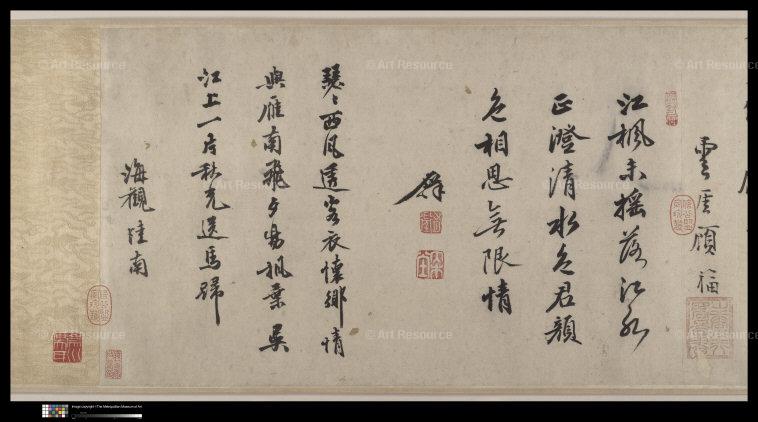 雲厓顧福
江楓未搖落江水
正澄清水色君顏
色相思無限情
瑟〻西風透客衣懷鄉情
與雁南飛夕陽楓葉吳
江上一片秋光送馬歸
海觀陸南
© Art Resource
© Art Resource
© Art Resource
© Art Resource
© Art Resource
© Art Resource
© Art Resource
© Art Resource
© Art Resource
Image copyright ©The Metropolitan Museum of Art